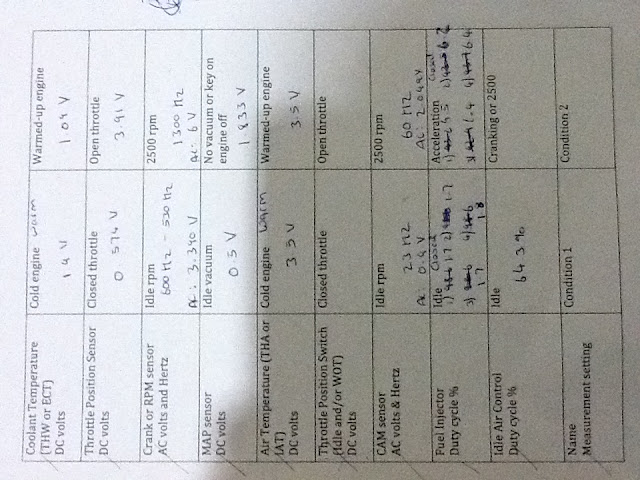 Coolant Temperature
(THW or ECT)
DC volts
Cold engine warm
1.4 V
Warmed-up engine
1.09 V
Throttle Position Sensor
DC volts
Closed throttle
0.574 V
Open throttle
3.91 V
Crank or RPM sensor
AC volts and Hertz
Idle rpm
600 Hz - 530 Hz
AC: 3.390 V
2500 rpm
1300 Hz
AC: 6 V
MAP sensor
DC volts
Idle vacuum
0.5 V
No vacuum or key on
engine off
1.833 V
Air Temperature (THA or
IAT)
DC volts
Cold engine warm
3.5 V
Warmed-up engine
3.5 V
Throttle Position Switch
(Idle and/or WOT)
DC volts
Closed throttle
Open throttle
CAM sensor
AC volts & Hertz
Idle rpm
23 Hz
AC: 0.9 V
2500 rpm
60 Hz
AC: 2.049 V
Fuel Injector
Duty cycle %
Idle Closed
1) 1.7 2) 1.7
3) 1.7 4) 1.8
Acceleration Closed
1) 2) 6.2
3) 6.4 4) 6.4
Idle Air Control
Duty cycle %
Idle
64.3 %
Cranking or 2500
Name
Measurement setting
Condition 1
Condition 2